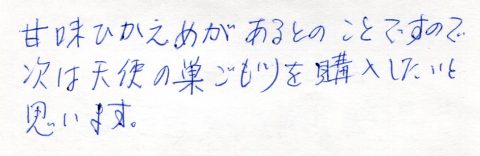 甘味ひかえめがあるとのことですので
次は天使の巣ごもりを購入したいと
思います。